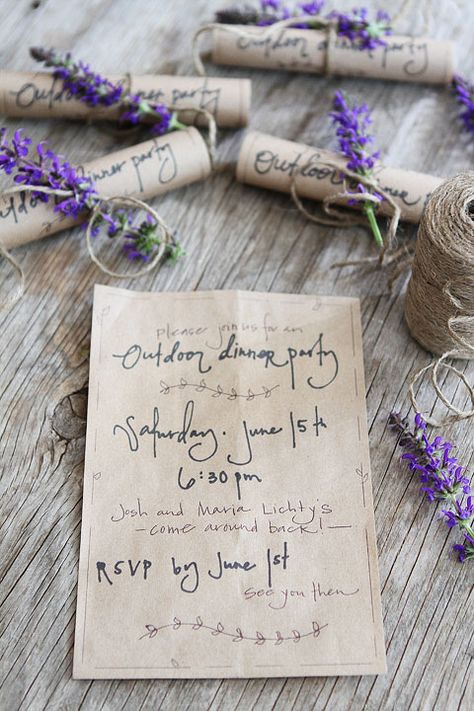 Outdoor dinner party
Outdoor dinner party
Outdoor
dinner party
Outdoor dinner
please join us for an
Outdoor dinner party
Saturday. June 15th
6:30pm
Josh and Maria Lichty's
- come around back! -
RSVP by June 1st
see you then